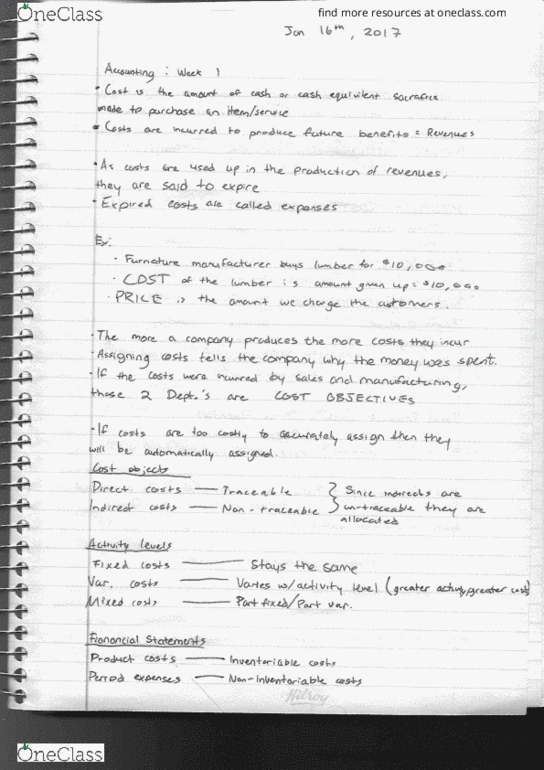 OneClass
find more resources at oneclass.com
Jan 16th, 2017
Accounting: Week 1
• Cost is the amount of cash or cash equivilent sacrafice
made to purchase an item/service
• Costs are incurred to produce future benefits = Revenues
• As costs are used up in the production of revenues,
they are said to expire
• Expired costs are called expenses
Ex:
• Furnature manufacturer buys lumber for $10,000
• COST of the lumber is amount given up = $10,000
• PRICE is the amount we charge the customers.
• The more a company produces the more costs they incur
• Assigning costs tells the company why the money was spent.
• If the costs were incurred by sales and manufacturing,
those 2 Dept.'s are COST OBJECTIVES
• If costs are too costly to accurately assign then they
will be automatically assigned.
Cost objects
Direct costs — Traceable } Since indirects are
Indirect costs — Non-traceable } un-traceable they are
allocated
Activity levels
Fixed costs — Stays the same
Var. costs — Varies w/activity level (greater activity, greater costs)
Mixed costs — Part fixed/Part var.
Fionancial Statements
Product costs — Inventoriable costs
Period expenses — Non-Inventoriable costs
Hilroy
OneClass